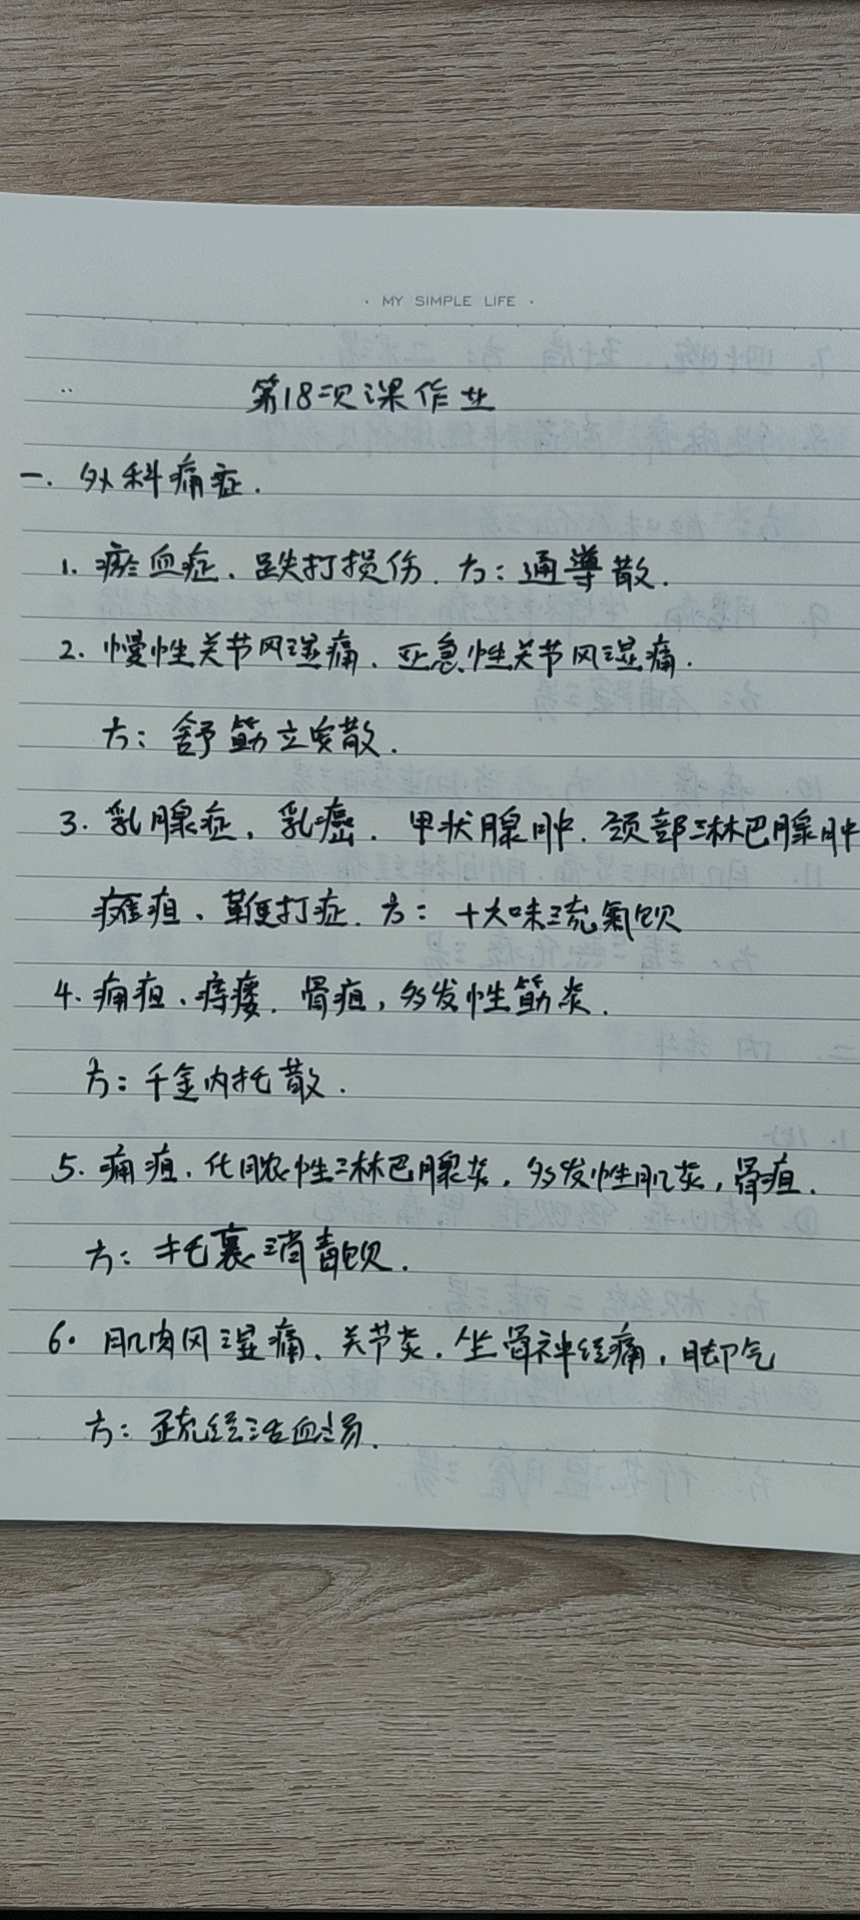 · MY SIMPLE LIFE ·
第18次课作业
一. 外科痛症.
1. 瘀血症、跌打损伤. 方：通導散.
2. 慢性关节风湿痛、亚急性关节风湿痛.
方：舒筋立安散.
3. 乳腺症, 乳癌. 甲状腺肿. 颈部淋巴腺肿
疽、鞭打症. 方：十六味流氣饮
4. 痈疽、痔瘘. 骨疽, 多发性筋炎.
方：千金内托散.
5. 痈疽. 化脓性淋巴腺炎, 多发性肌炎, 骨疽.
方：托裏消毒饮.
6. 肌肉风湿痛、关节炎. 坐骨神经痛, 脚气
方：疏经活血汤.